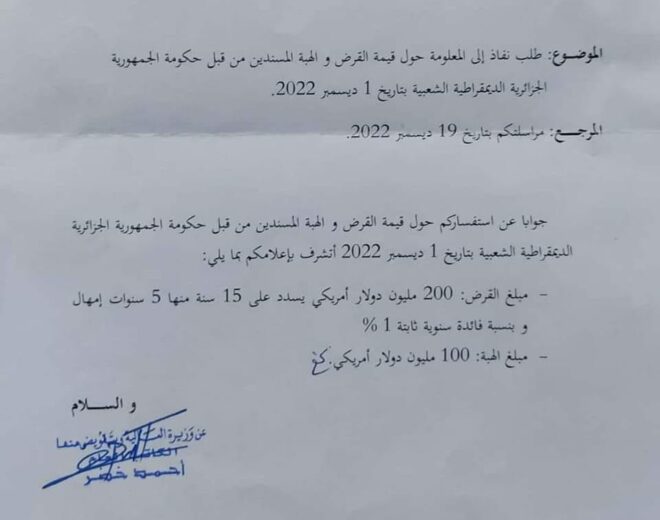 الموضوع: طلب نفاذ إلى المعلومة حول قيمة القرض و الهبة المسندين من قبل حكومة الجمهورية
الجزائرية الديمقراطية الشعبية بتاريخ 1 ديسمبر 2022.
المرجع: مراسلتكم بتاريخ 19 ديسمبر 2022.
جوابا عن استفساركم حول قيمة القرض و الهبة المسندين من قبل حكومة الجمهورية الجزائرية
الديمقراطية الشعبية بتاريخ 1 ديسمبر 2022 أتشرف بإعلامكم بما يلي:
– مبلغ القرض: 200 مليون دولار أمريكي يسدد على 15 سنة منها 5 سنوات إمهال
و بنسبة فائدة سنوية ثابتة 1 %
– مبلغ الهبة: 100 مليون دولار أمريكي.
و السلام
عن وزيرة المالية وبتفويض منها
أحمد